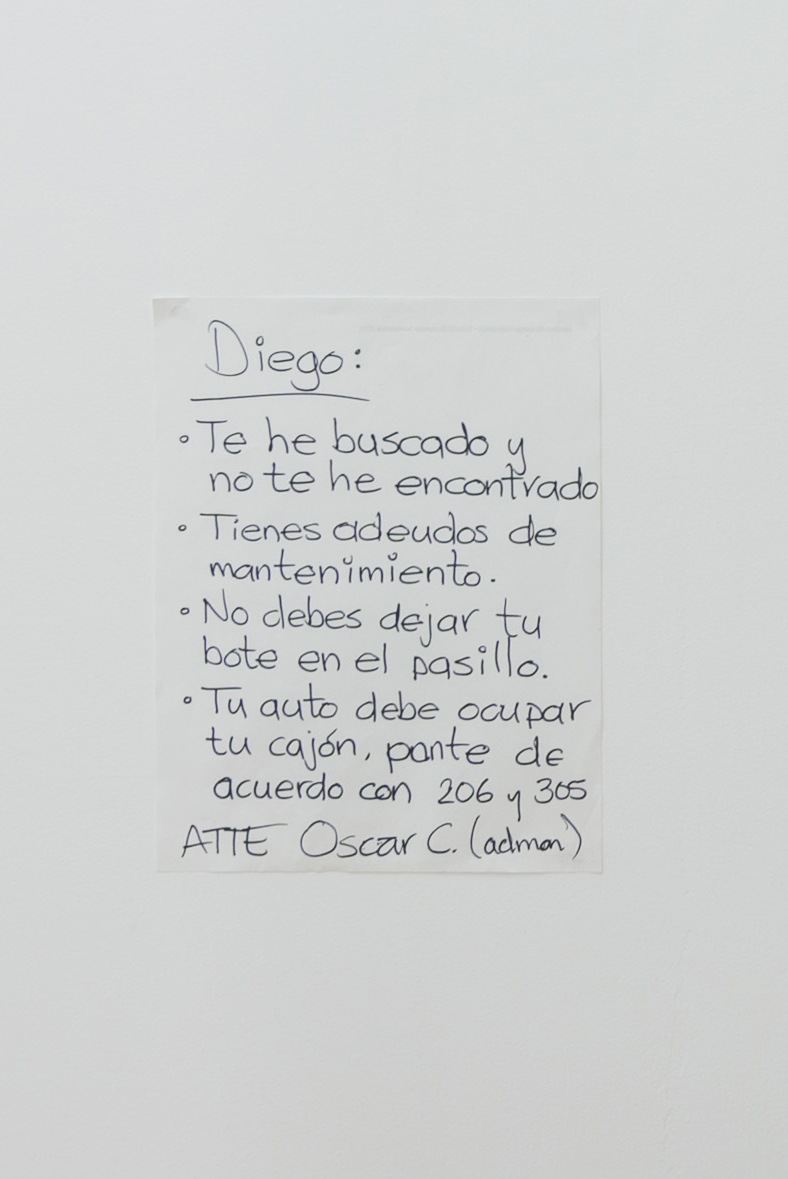 Diego:
• Te he buscado y
no te he encontrado
• Tienes adeudos de
mantenimiento.
• No debes dejar tu
bote en el pasillo.
• Tu auto debe ocupar
tu cajón, ponte de
acuerdo con 206 y 305
ATTE Oscar C. (admon)